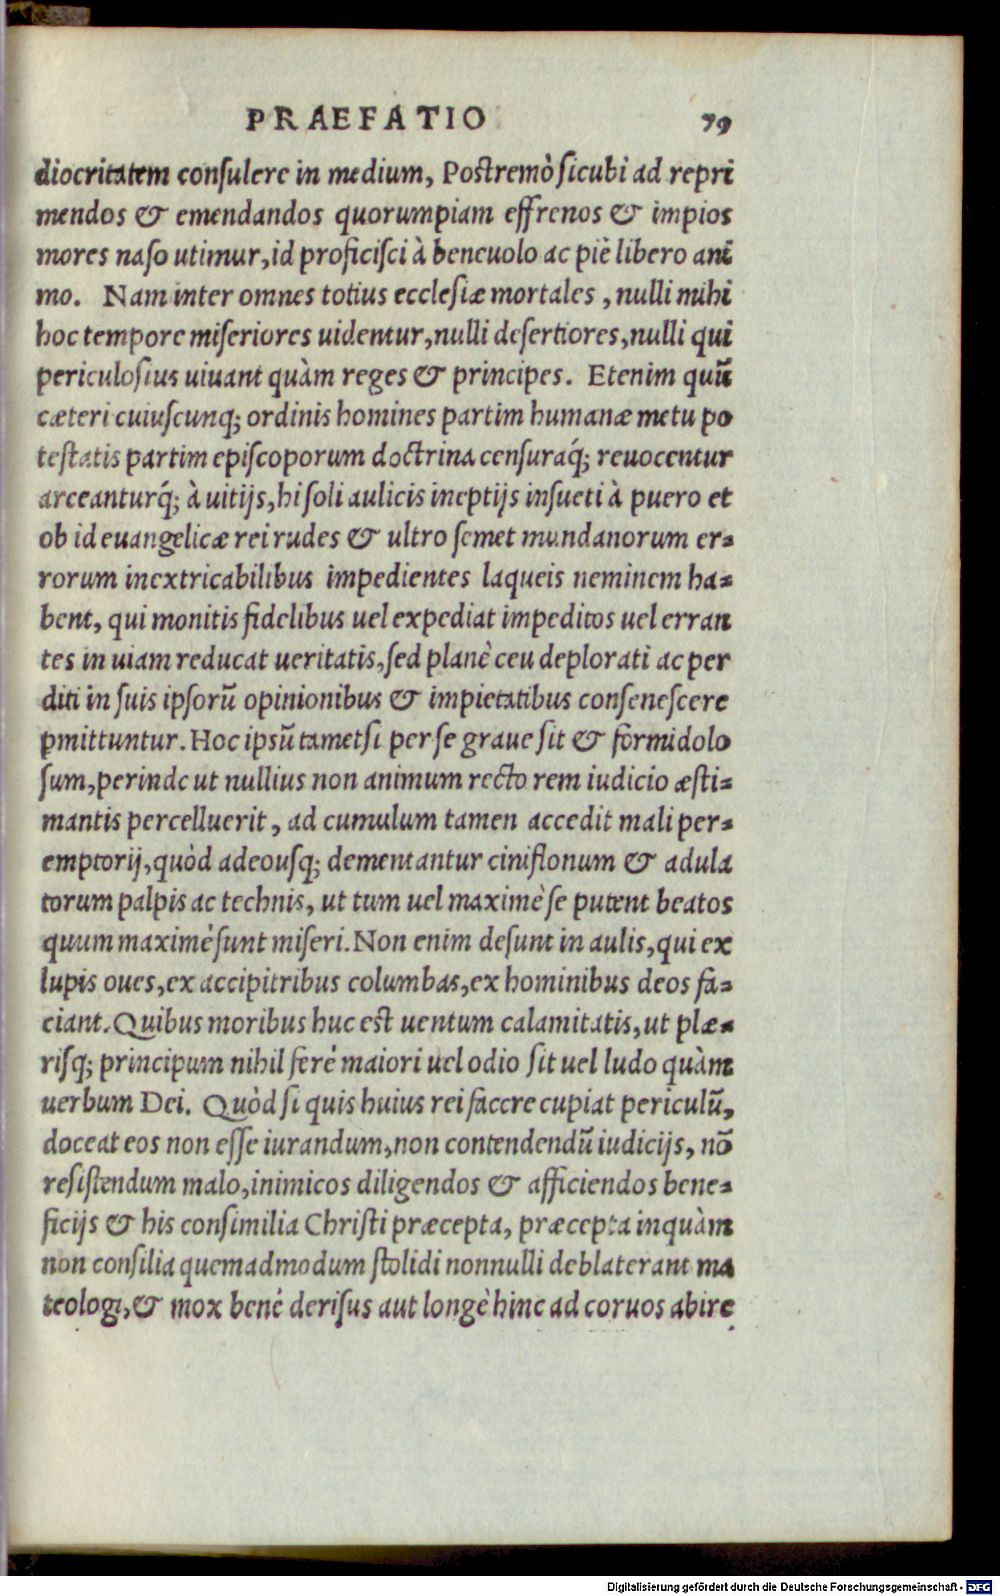 PRAEFATIO 79
diocritatem consulere in medium, Postremò sicubi ad repri
mendos & emendandos quorumpiam effrenos & impios
mores naso utimur, id proficisci à beneuolo ac piè libero ani
mo. Nam inter omnes totius ecclesiæ mortales, nulli mihi
hoc tempore miseriores uidentur, nulli desertiores, nulli qui
periculosius uiuant quàm reges & principes. Etenim quū
cæteri cuiuscunq; ordinis homines partim humanæ metu po
testatis partim episcoporum doctrina censuraq́; reuocentur
arceanturq́; à uitijs, hi soli aulicis ineptijs insueti à puero et
ob id euangelicæ rei rudes & ultro semet mundanorum er=
rorum inextricabilibus impedientes laqueis neminem ha=
bent, qui monitis fidelibus uel expediat impeditos uel erran
tes in uiam reducat ueritatis, sed planè ceu deplorati ac per
diti in suis ipsorū opinionibus & impietatibus consenescere
pmittuntur. Hoc ipsū tametsi per se graue sit & formidolo
sum, perinde ut nullius non animum recto rem iudicio æsti=
mantis percelluerit, ad cumulum tamen accedit mali per=
emptorij, quòd adeousq; dementantur ciniflonum & adula
torum palpis ac technis, ut tum uel maximè se putent beatos
quum maximé sunt miseri. Non enim desunt in aulis, qui ex
lupis oues, ex accipitribus columbas, ex hominibus deos fa=
ciant. Quibus moribus huc est uentum calamitatis, ut plæ=
risq; principum nihil feré maiori uel odio sit uel ludo quàm
uerbum Dei. Quòd si quis huius rei faccre cupiat periculū,
doceat eos non esse iurandum, non contendendū iudicijs, nō
resistendum malo, inimicos diligendos & afficiendos bene=
ficijs & his consimilia Christi præcepta, præcepta inquàm
non consilia quemadmodum stolidi nonnulli deblaterant ma
teologi, & mox bené derisus aut longè hinc ad coruos abire
Digitalisierung gefördert durch die Deutsche Forschungsgemeinschaft - DFG